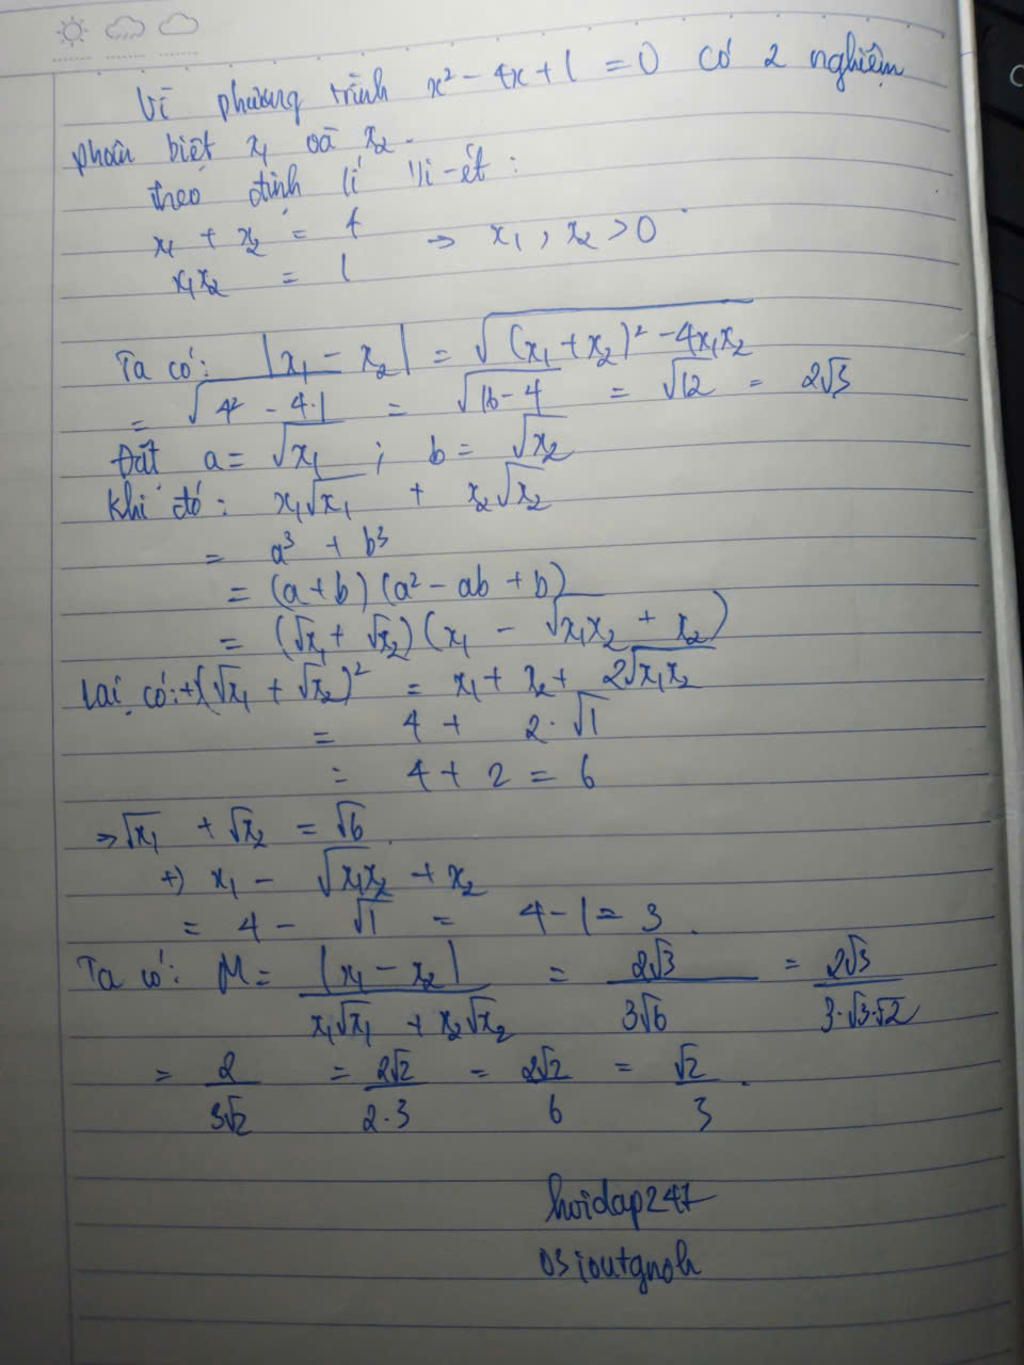 Vì phương trình x² - 4x + 1 = 0 có 2 nghiệm
phân biệt x₁ và x₂.
theo định lí Vi-ét:
x₁ + x₂ = 4 ⇒ x₁, x₂ > 0
x₁x₂ = 1
Ta có: |x₁ - x₂| = √((x₁ + x₂)² - 4x₁x₂)
= √(4² - 4.1) = √(16 - 4) = √12 = 2√3
Đặt a = √x₁ ; b = √x₂
Khi đó: x₁√x₁ + x₂√x₂
= a³ + b³
= (a + b)(a² - ab + b)
= (√x₁ + √x₂)(x₁ - √x₁x₂ + x₂)
Lại có: +(√x₁ + √x₂)² = x₁ + x₂ + 2√x₁x₂
= 4 + 2.√1
= 4 + 2 = 6
⇒ √x₁ + √x₂ = √6.
+) x₁ - √x₁x₂ + x₂
= 4 - √1 = 4 - 1 = 3.
Ta có: M = |x₁ - x₂| / (x₁√x₁ + x₂√x₂) = 2√3 / 3√6 = 2√3 / 3.√3.√2
= 2 / 3√2 = 2√2 / 2.3 = 2√2 / 6 = √2 / 3.
hoidap247
osioutgnoh